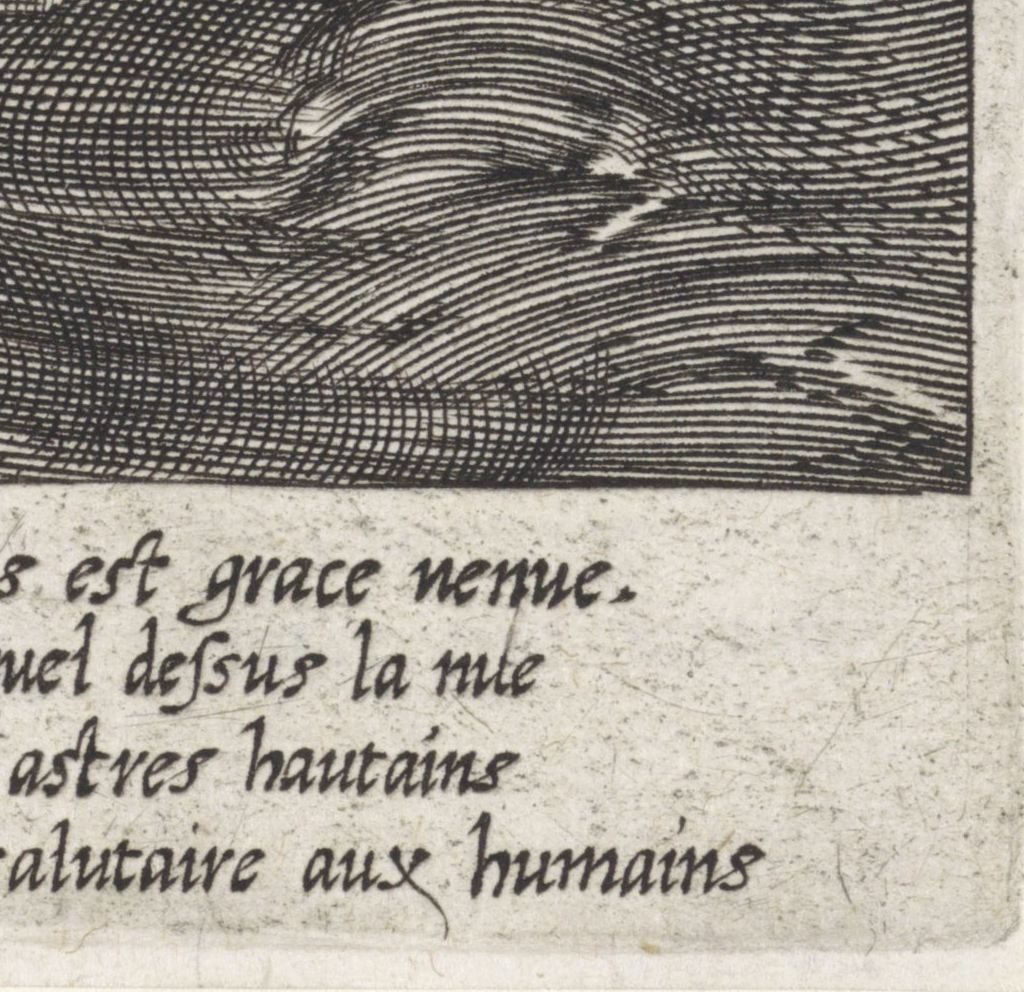 s est grace uenue.
uel deſsus la nue
astres hautains
salutaire aux humains